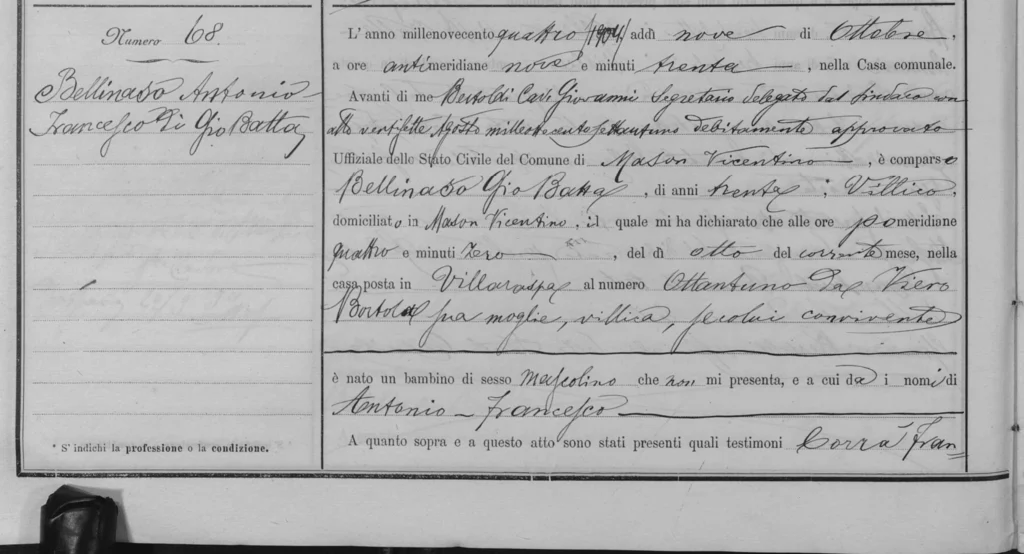 Numero 68.
Bellinaso Antonio
Francesco di Gio Batta
* S'indichi la professione o la condizione.
L'anno millenovecento quattro /1904/ addì nove di Ottobre,
a ore antimeridiane nove e minuti trenta, nella Casa comunale.
Avanti di me Bertoldi Cav. Giovanni Segretario delegato dal sindaco con
atto ventisette Agosto milleottocentosettantuno debitamente approvato
Uffiziale dello Stato Civile del Comune di Mason Vicentino, è comparso
Bellinaso Gio Batta, di anni trenta, Villico,
domiciliato in Mason Vicentino, il quale mi ha dichiarato che alle ore pomeridiane
quattro e minuti zero, del dì otto del corrente mese, nella
casa posta in Villaraspa al numero Ottantuno da Viero
Bortola sua moglie, villica, secolui convivente
è nato un bambino di sesso Mascolino che non mi presenta, e a cui dà i nomi di
Antonio - Francesco
A quanto sopra e a questo atto sono stati presenti quali testimoni Corrà Fran=